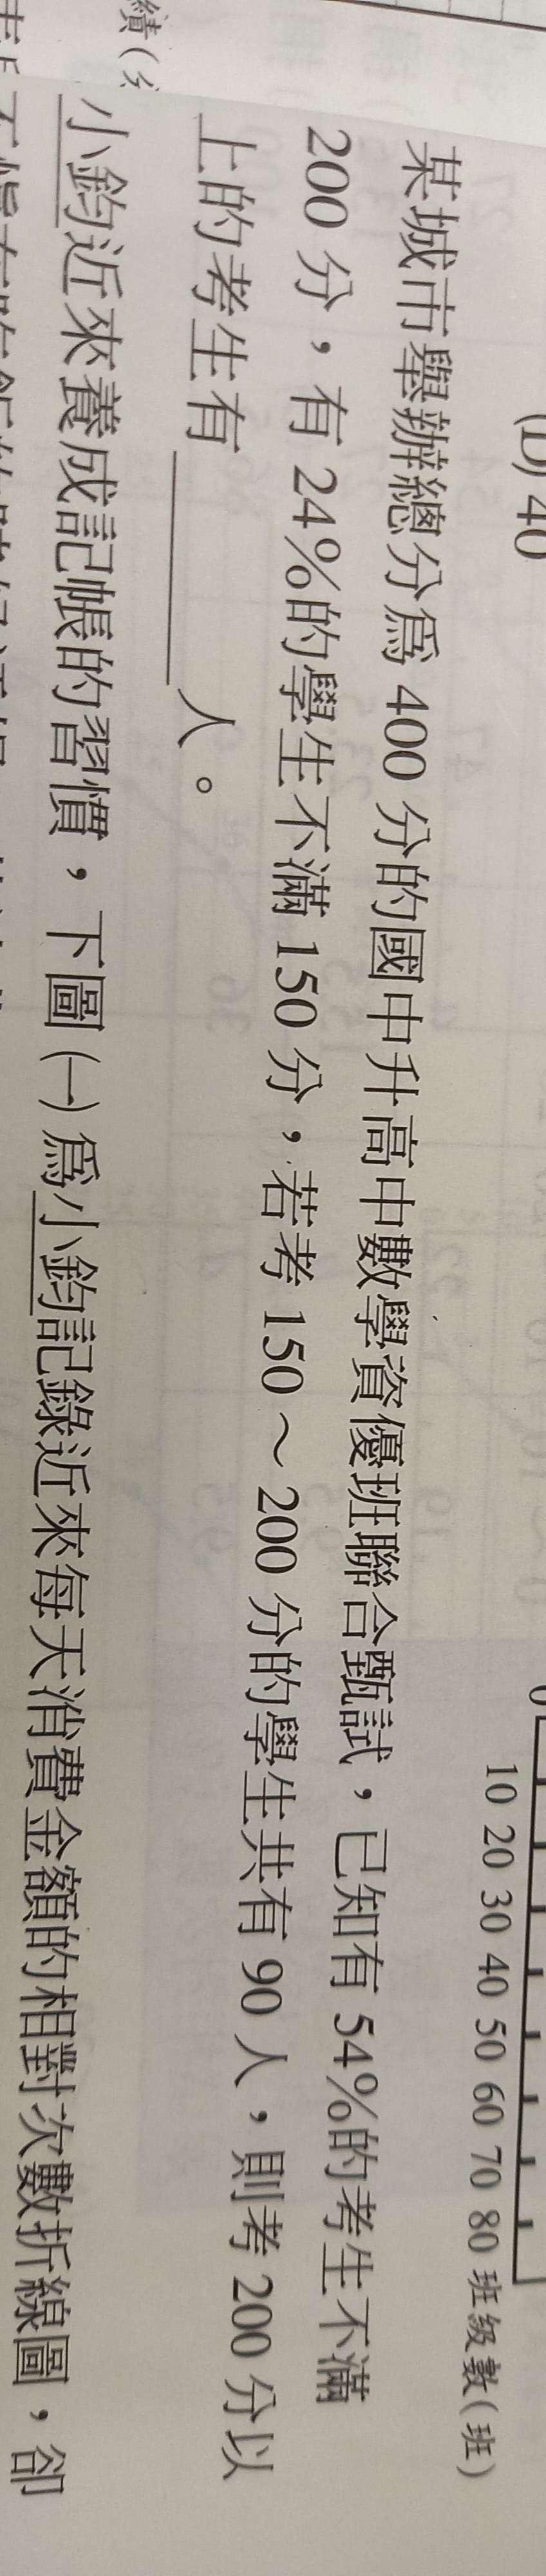 (D) 40
10 20 30 40 50 60 70 80 班級數(班)
某城市舉辦總分為 400 分的國中升高中數學資優班聯合甄試，已知有 54%的考生不滿
200 分，有 24%的學生不滿 150 分，若考 150～200 分的學生共有 90 人，則考 200 分以
上的考生有________人。
績(分
小鈞近來養成記帳的習慣，下圖(一)為小鈞記錄近來每天消費金額的相對次數折線圖，卻